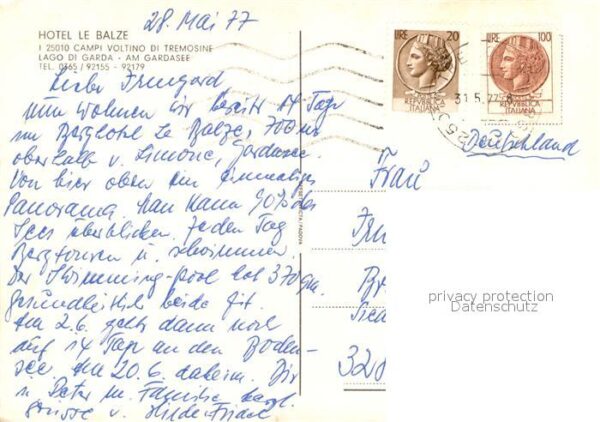 28. Mai 77
HOTEL LE BALZE
I 25010 CAMPI VOLTINO DI TREMOSINE
LAGO DI GARDA - AM GARDASEE
TEL. 0365 / 92155 - 92179
Lieber Irmgard
Nun wohnen wir bereits 14 Tage
im Berghotel Le Balze, 700 m
oberhalb v. Limone, Gardasee.
Von hier oben ein einmaliges
Panorama. Man kann 90% des
Sees überblicken. Jeden Tag
Bergtouren u. schwimmen.
Der Swimming-pool hat 370 qm.
Gesundheitlich beide fit.
Am 2.6. geht dann noch
auf 14 Tage an den Boden-
see. Am 20.6. daheim. Dir
u. Peter m. Familie herzl.
Grüsse v. Hilde
LIRE 20
REPVBBLICA
ITALIANA
LIRE 100
REPVBBLICA
ITALIANA
31.5.77
Deutschland
Frau
320
privacy protection
Datenschutz